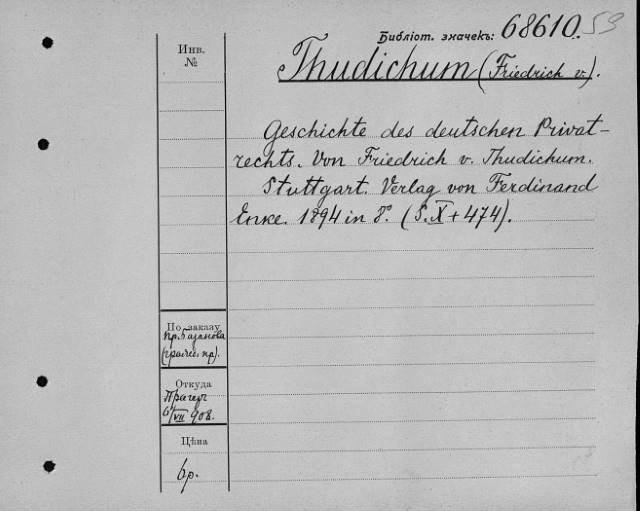 Библіот. значекъ: 68610. 59
Thudichum (Friedrich v.).
Инв.
№
Geschichte des deutschen Privat-
rechts. Von Friedrich v. Thudichum.
Stuttgart. Verlag von Ferdinand
Enke. 1894 in 8º. (S. X + 474).
По заказу
пр. Базанова
(гражд. пр).
Откуда
Прагеръ
6/VII 908.
Цѣна
6р.